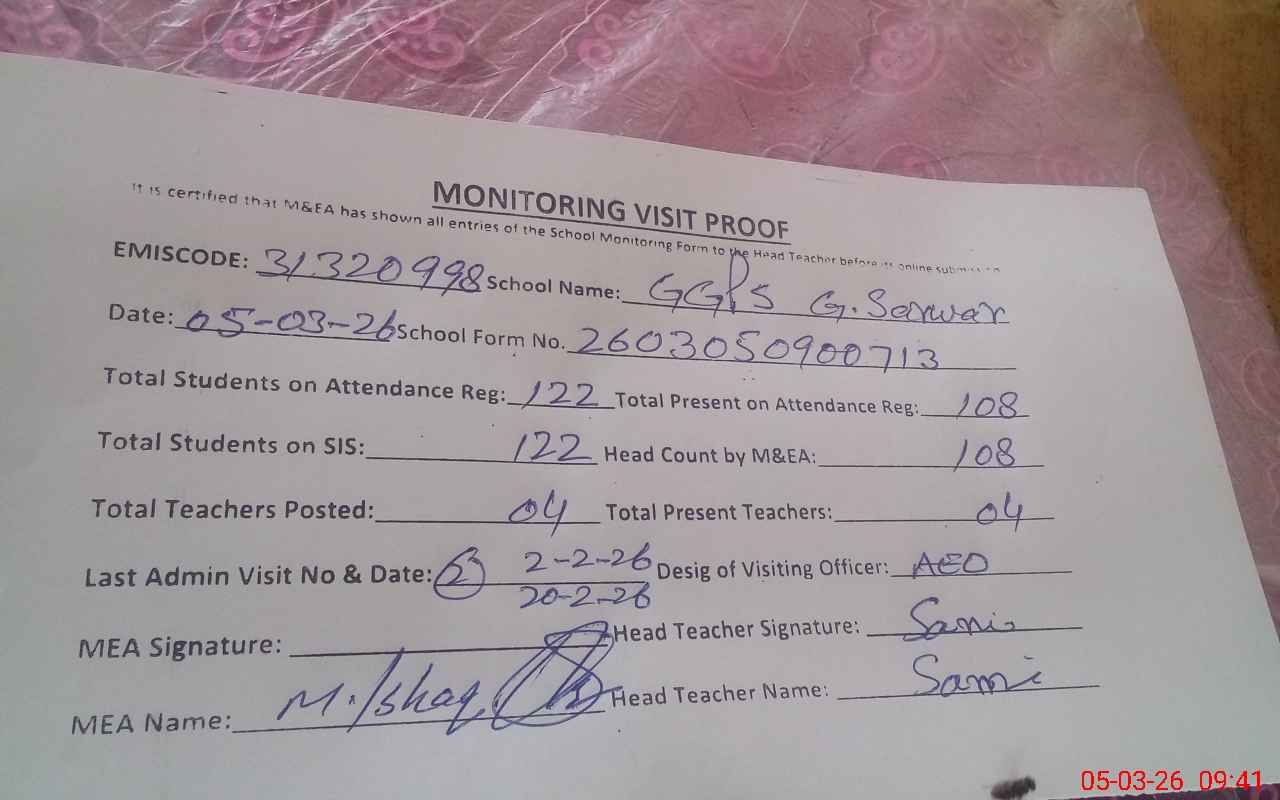 MONITORING VISIT PROOF
It is certified that M&EA has shown all entries of the School Monitoring Form to the Head Teacher before its online submission
EMISCODE: 31320998 School Name: GGPS G. Sarwar
Date: 05-03-26 School Form No. 2603050900713
Total Students on Attendance Reg: 122 Total Present on Attendance Reg: 108
Total Students on SIS: 122 Head Count by M&EA: 108
Total Teachers Posted: 04 Total Present Teachers: 04
Last Admin Visit No & Date: 2 2-2-26 Desig of Visiting Officer: AEO
20-2-26
MEA Signature: Head Teacher Signature: Sami
MEA Name: M. Ishaq Head Teacher Name: Sami
05-03-26 09:41